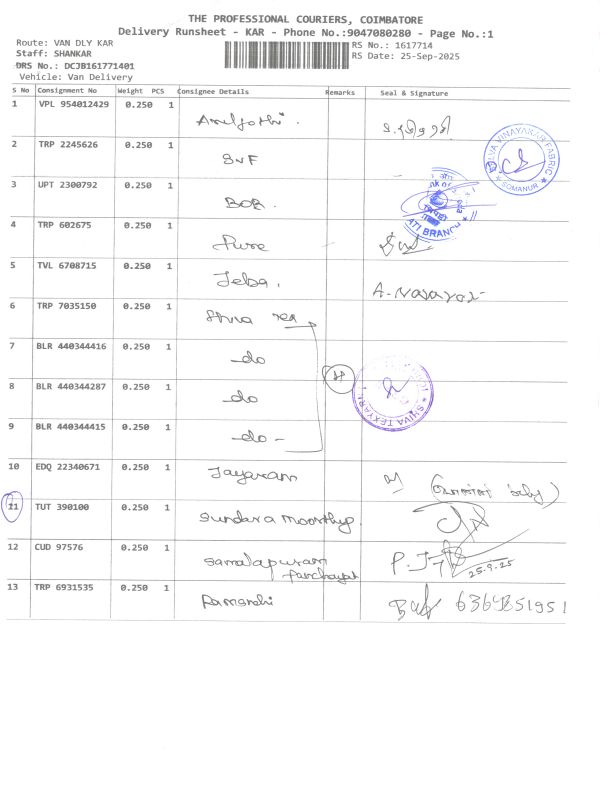 THE PROFESSIONAL COURIERS, COIMBATORE
Delivery Runsheet - KAR - Phone No.:9047080280 - Page No.:1
Route: VAN DLY KAR
Staff: SHANKAR
DRS No.: DCJB161771401
Vehicle: Van Delivery
RS No.: 1617714
RS Date: 25-Sep-2025
S No Consignment No Weight PCS Consignee Details Remarks Seal & Signature
1 VPL 954012429 0.250 1
2 TRP 2245626 0.250 1 SVF
VINAYAKAR FABRIC
SOMANUR
3 UPT 2300792 0.250 1 BOB
ATI BRANCH
4 TRP 602675 0.250 1 Pure
5 TVL 6708715 0.250 1 Jeba.
6 TRP 7035150 0.250 1 Shiva Tex
7 BLR 440344416 0.250 1 -do
8 BLR 440344287 0.250 1 do
SHIVA TEXYARN
9 BLR 440344415 0.250 1 -do-
10 EDQ 22340671 0.250 1 Jayaram
11 TUT 390100 0.250 1 Sundara moorthy.
12 CUD 97576 0.250 1 Samalapuram Panchayat
25.9.25
13 TRP 6931535 0.250 1